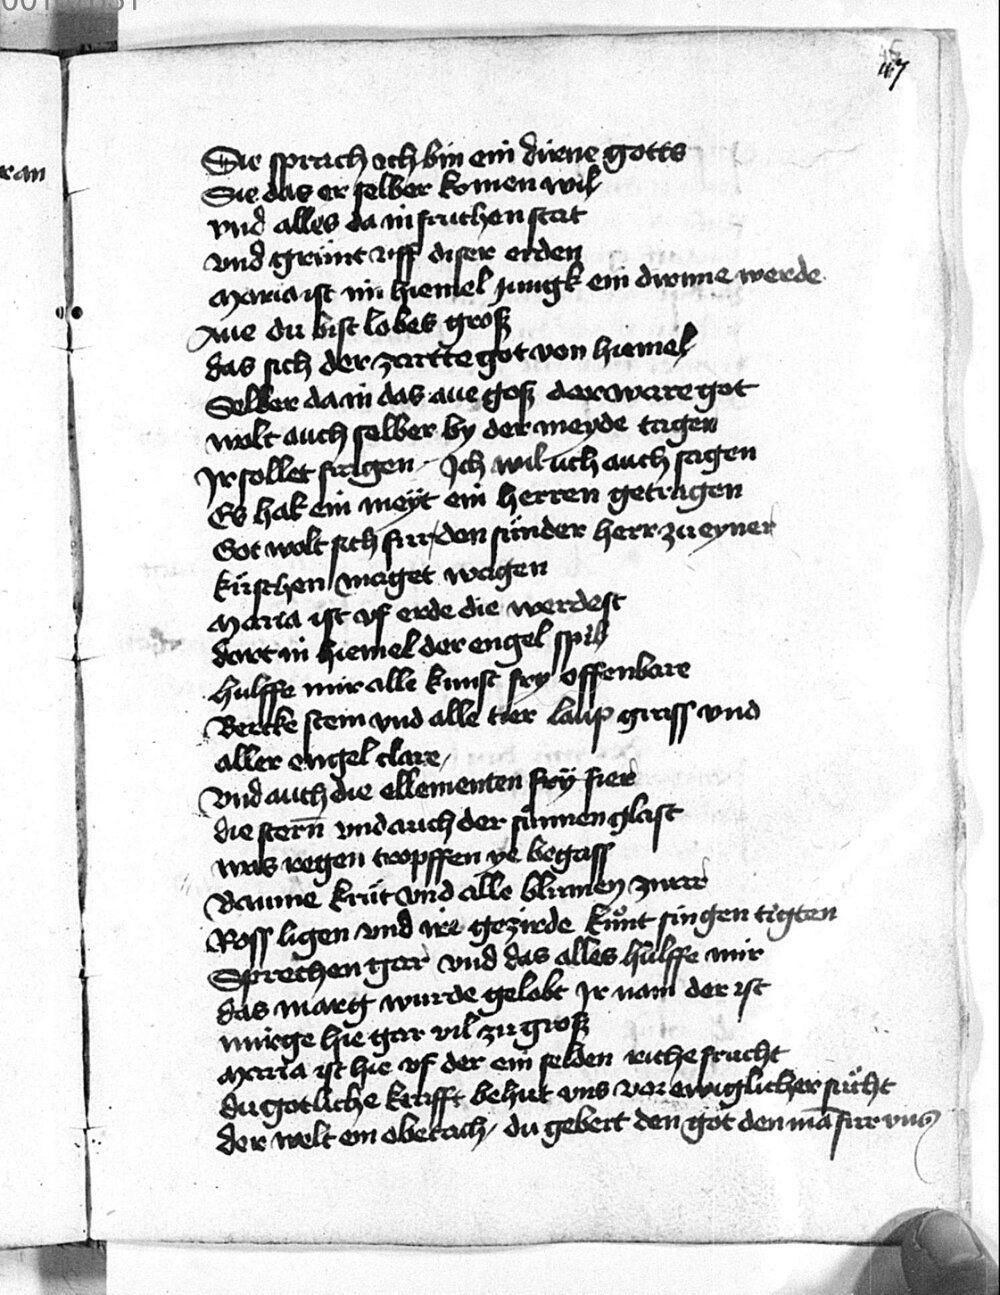 Sie sprach ich bin ein dirne gotts
Sie das er selber komen wil
vnd alles da in fruchen stat
vnd grunt vff diser erden
Maria ist im hiemel jungk ein dirnne werde
Aue du bist lobes groß
das sich der zartte got von hiemel
Selber da in das aue goß der ware got
wolt auch selber by der meyde tagen
Ir sollet fragen Ich wil uch auch sagen
Es hat ein meyt ein herren getragen
Got wolt sich fur den sunder herr zu eyner
kuschen maget wagen
Maria ist vf erde die werdest
dort in hiemel der engel spil
hulffe mir alle kunst fry offenbare
Bercke stein vnd alle tier laup grass vnd
aller engel clare
Vnd auch die ellementen fry fier
die stern vnd auch der sunnen glast
was regen tropffen ye begass
Baume krut vnd alle blumen zwar
Ross ligen vnd ire gezirde kunt singen tigten
Sprechen gar vnd das alles hulffe mir
das marg wurde gelobt Ir nam der ist
mirge hie gar vil zu groß
Maria ist hie vf der ein selden riche frucht
du gotliche krafft behut vns vor ewiglicher sucht
der welt ein obetach du gebert den got den mā fur vns